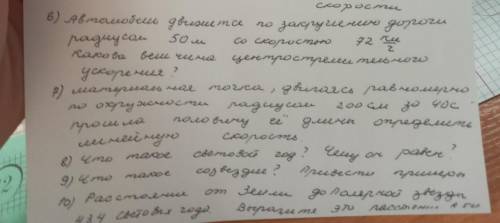 скорости
6) Автомобиль движется по закруглению дороги
радиусом 50 м со скоростью 72 км/ч
Какова величина центростремительного
ускорения?
7) материальная точка, двигаясь равномерно
по окружности радиусом 200 см за 40 с
прошла половину её длины определить
линейную скорость.
8) Что такое световой год? Чему он равен?
9) Что такое созвездие? Привести примеры
10) Расстояние от Земли до Полярной звезды
световых года. Выразите это расстояние